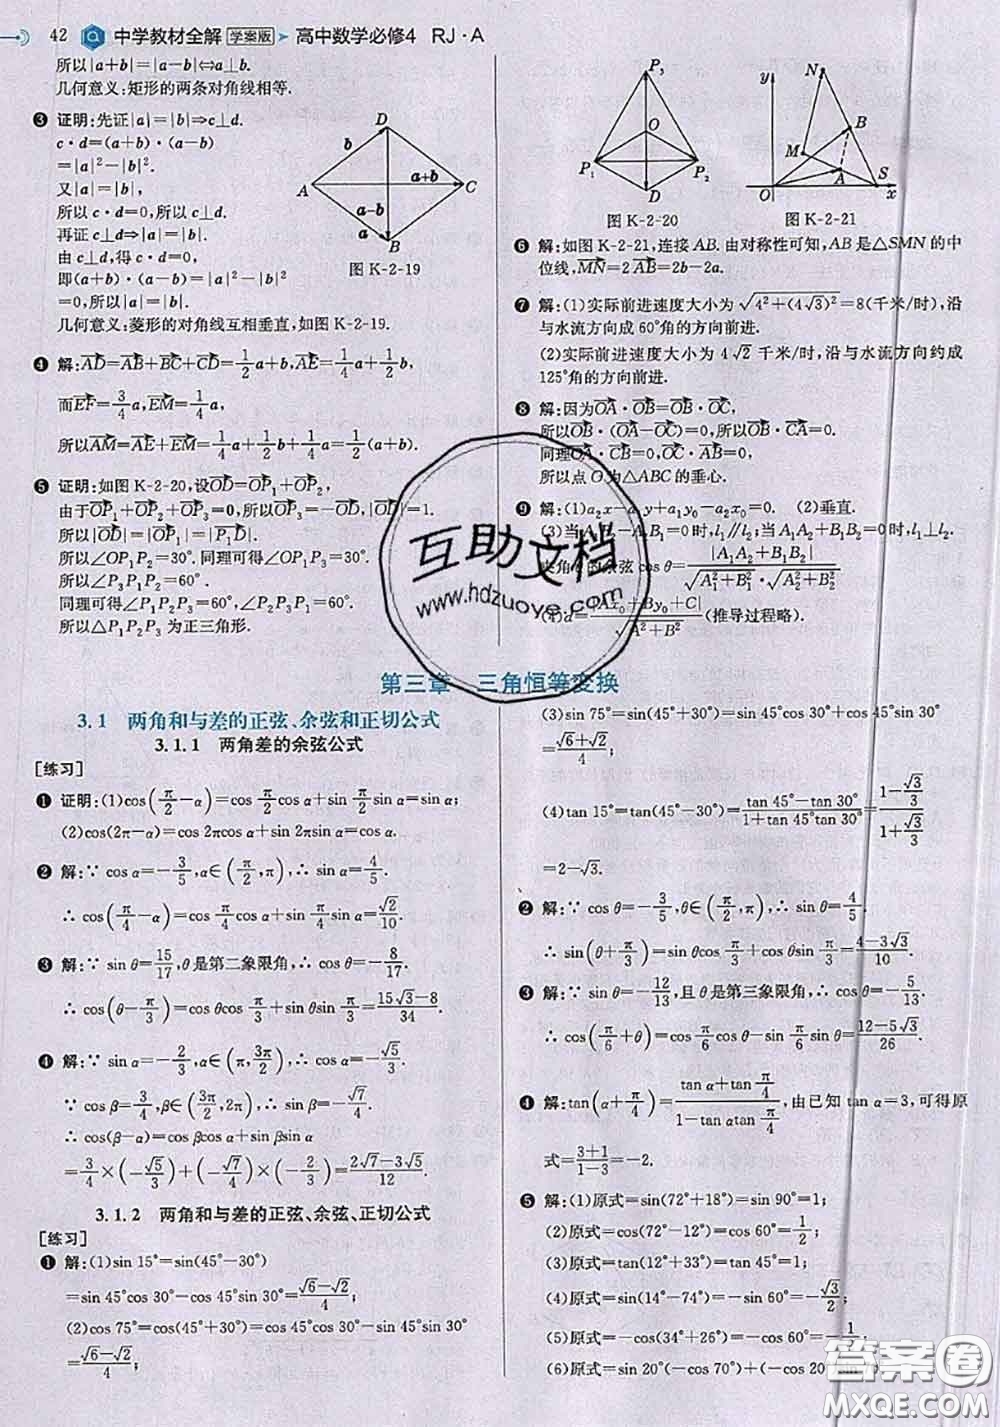 42 中学教材全解 学案版 高中数学必修4 RJ·A
所以|a+b|=|a−b|⇔a⊥b.
几何意义:矩形的两条对角线相等.
❸ 证明:先证|a|=|b|⇒c⊥d.
c·d=(a+b)·(a−b)
=|a|²−|b|².
又|a|=|b|,
所以c·d=0,所以c⊥d.
再证c⊥d⇒|a|=|b|.
由c⊥d,得c·d=0,
即(a+b)·(a−b)=|a|²−|b|²=0,
所以|a|=|b|.
几何意义:菱形的对角线互相垂直,如图K-2-19.
D
b
a+b
A
C
a−b
a
B
图K-2-19
❹ 解:AD=AB+BC+CD=1/2a+b+1/4a=1/4a+1/2b,
而EF=3/4a,EM=1/4a,
所以AM=AE+EM=1/4a+1/2b+1/4a=1/2(a+b).
❺ 证明:如图K-2-20,设OD=OP₁+OP₂,
由于OP₁+OP₂+OP₃=0,所以OP₃=−OD,|OD|=1.
所以|OD|=|OP₁|=|P₁D|.
所以∠OP₁P₂=30°.同理可得∠OP₁P₃=30°.
所以∠P₃P₁P₂=60°.
同理可得∠P₁P₂P₃=60°,∠P₂P₃P₁=60°.
所以△P₁P₂P₃为正三角形.
P₃
O
P₁
P₂
D
图K-2-20
y
N
B
M
A
O
S
x
图K-2-21
❻ 解:如图K-2-21,连接AB.由对称性可知,AB是△SMN的中
位线,MN=2AB=2b−2a.
❼ 解:(1)实际前进速度大小为√(4²+(4√3)²)=8(千米/时),沿
与水流方向成60°角的方向前进.
(2)实际前进速度大小为4√2千米/时,沿与水流方向约成
125°角的方向前进.
❽ 解:因为OA·OB=OB·OC,
所以OB·(OA−OC)=0,所以OB·CA=0.
同理OA·CB=0,OC·AB=0.
所以点O为△ABC的垂心.
❾ 解:(1)a₂x−a₁y+a₁y₀−a₂x₀=0. (2)垂直.
(3)当A₁B₂−A₂B₁=0时,l₁∥l₂;当A₁A₂+B₁B₂=0时,l₁⊥l₂.
夹角θ的余弦cosθ=|A₁A₂+B₁B₂|/(√(A₁²+B₁²)·√(A₂²+B₂²)).
(4)d=|Ax₀+By₀+C|/√(A²+B²)(推导过程略).
互助文档
www.hdzuoye.com
第三章 三角恒等变换
3.1 两角和与差的正弦、余弦和正切公式
3.1.1 两角差的余弦公式
[练习]
❶ 证明:(1)cos(π/2−α)=cos π/2 cos α+sin π/2 sin α=sin α;
(2)cos(2π−α)=cos 2πcos α+sin 2πsin α=cos α.
❷ 解:∵ cos α=−3/5,α∈(π/2,π),∴ sin α=4/5.
∴ cos(π/4−α)=cos π/4 cos α+sin π/4 sin α=√2/10.
❸ 解:∵ sin θ=15/17,θ是第二象限角,∴ cos θ=−8/17.
∴ cos(θ−π/3)=cos θcos π/3+sin θsin π/3=(15√3−8)/34.
❹ 解:∵ sin α=−2/3,α∈(π,3π/2),∴ cos α=−√5/3.
∵ cos β=3/4,β∈(3π/2,2π),∴ sin β=−√7/4.
∴ cos(β−α)=cos βcos α+sin βsin α
=3/4×(−√5/3)+(−√7/4)×(−2/3)=(2√7−3√5)/12.
3.1.2 两角和与差的正弦、余弦、正切公式
[练习]
❶ 解:(1)sin 15°=sin(45°−30°)
=sin 45°cos 30°−cos 45°sin 30°=(√6−√2)/4;
(2)cos 75°=cos(45°+30°)=cos 45°cos 30°−sin 45°sin 30°=
(√6−√2)/4;
(3)sin 75°=sin(45°+30°)=sin 45°cos 30°+cos 45°sin 30°
=(√6+√2)/4;
(4)tan 15°=tan(45°−30°)=(tan 45°−tan 30°)/(1+tan 45°tan 30°)=(1−√3/3)/(1+√3/3)
=2−√3.
❷ 解:∵ cos θ=−3/5,θ∈(π/2,π),∴ sin θ=4/5.
∴ sin(θ+π/3)=sin θcos π/3+cos θsin π/3=(4−3√3)/10.
❸ 解:∵ sin θ=−12/13,且θ是第三象限角,∴ cos θ=−5/13.
∴ cos(π/6+θ)=cos π/6 cos θ−sin π/6 sin θ=(12−5√3)/26.
❹ 解:tan(α+π/4)=(tan α+tan π/4)/(1−tan αtan π/4),由已知tan α=3,可得原
式=(3+1)/(1−3)=−2.
❺ 解:(1)原式=sin(72°+18°)=sin 90°=1;
(2)原式=cos(72°−12°)=cos 60°=1/2;
(3)原式=tan(12°+33°)=tan 45°=1;
(4)原式=sin(14°−74°)=sin(−60°)=−√3/2;
(5)原式=−cos(34°+26°)=−cos 60°=−1/2;
(6)原式=sin 20°(−cos 70°)+(−cos 20°)sin
答案圈
MXQE.COM